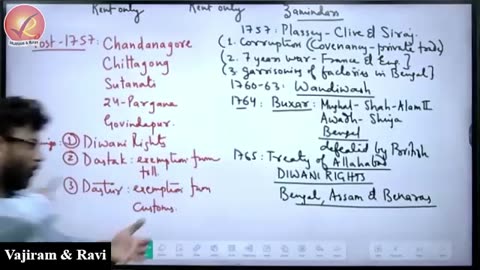 Rent only Rent only Zamindari
Post-1757: Chandanagore
Chittagong
Sutanati
24-Pargana
Govindapur.
① Diwani Rights
② Dastak: exemption from toll
③ Dastur: exemption from Customs.
1757: Plassey - Clive & Siraj
(1. Corruption (Covenancy - private trade)
(2. 7 year war - France & Eng.]
(3. garrisoning of factories in Bengal]
1760-63: Wandiwash
1764: Buxar: Mughal - Shah-Alam II
Awadh - Shuja
Bengal
defeated by British
1765: Treaty of Allahabad
DIWANI RIGHTS
Bengal, Assam & Benaras
VAJIRAM & RAVI
Vajiram & Ravi